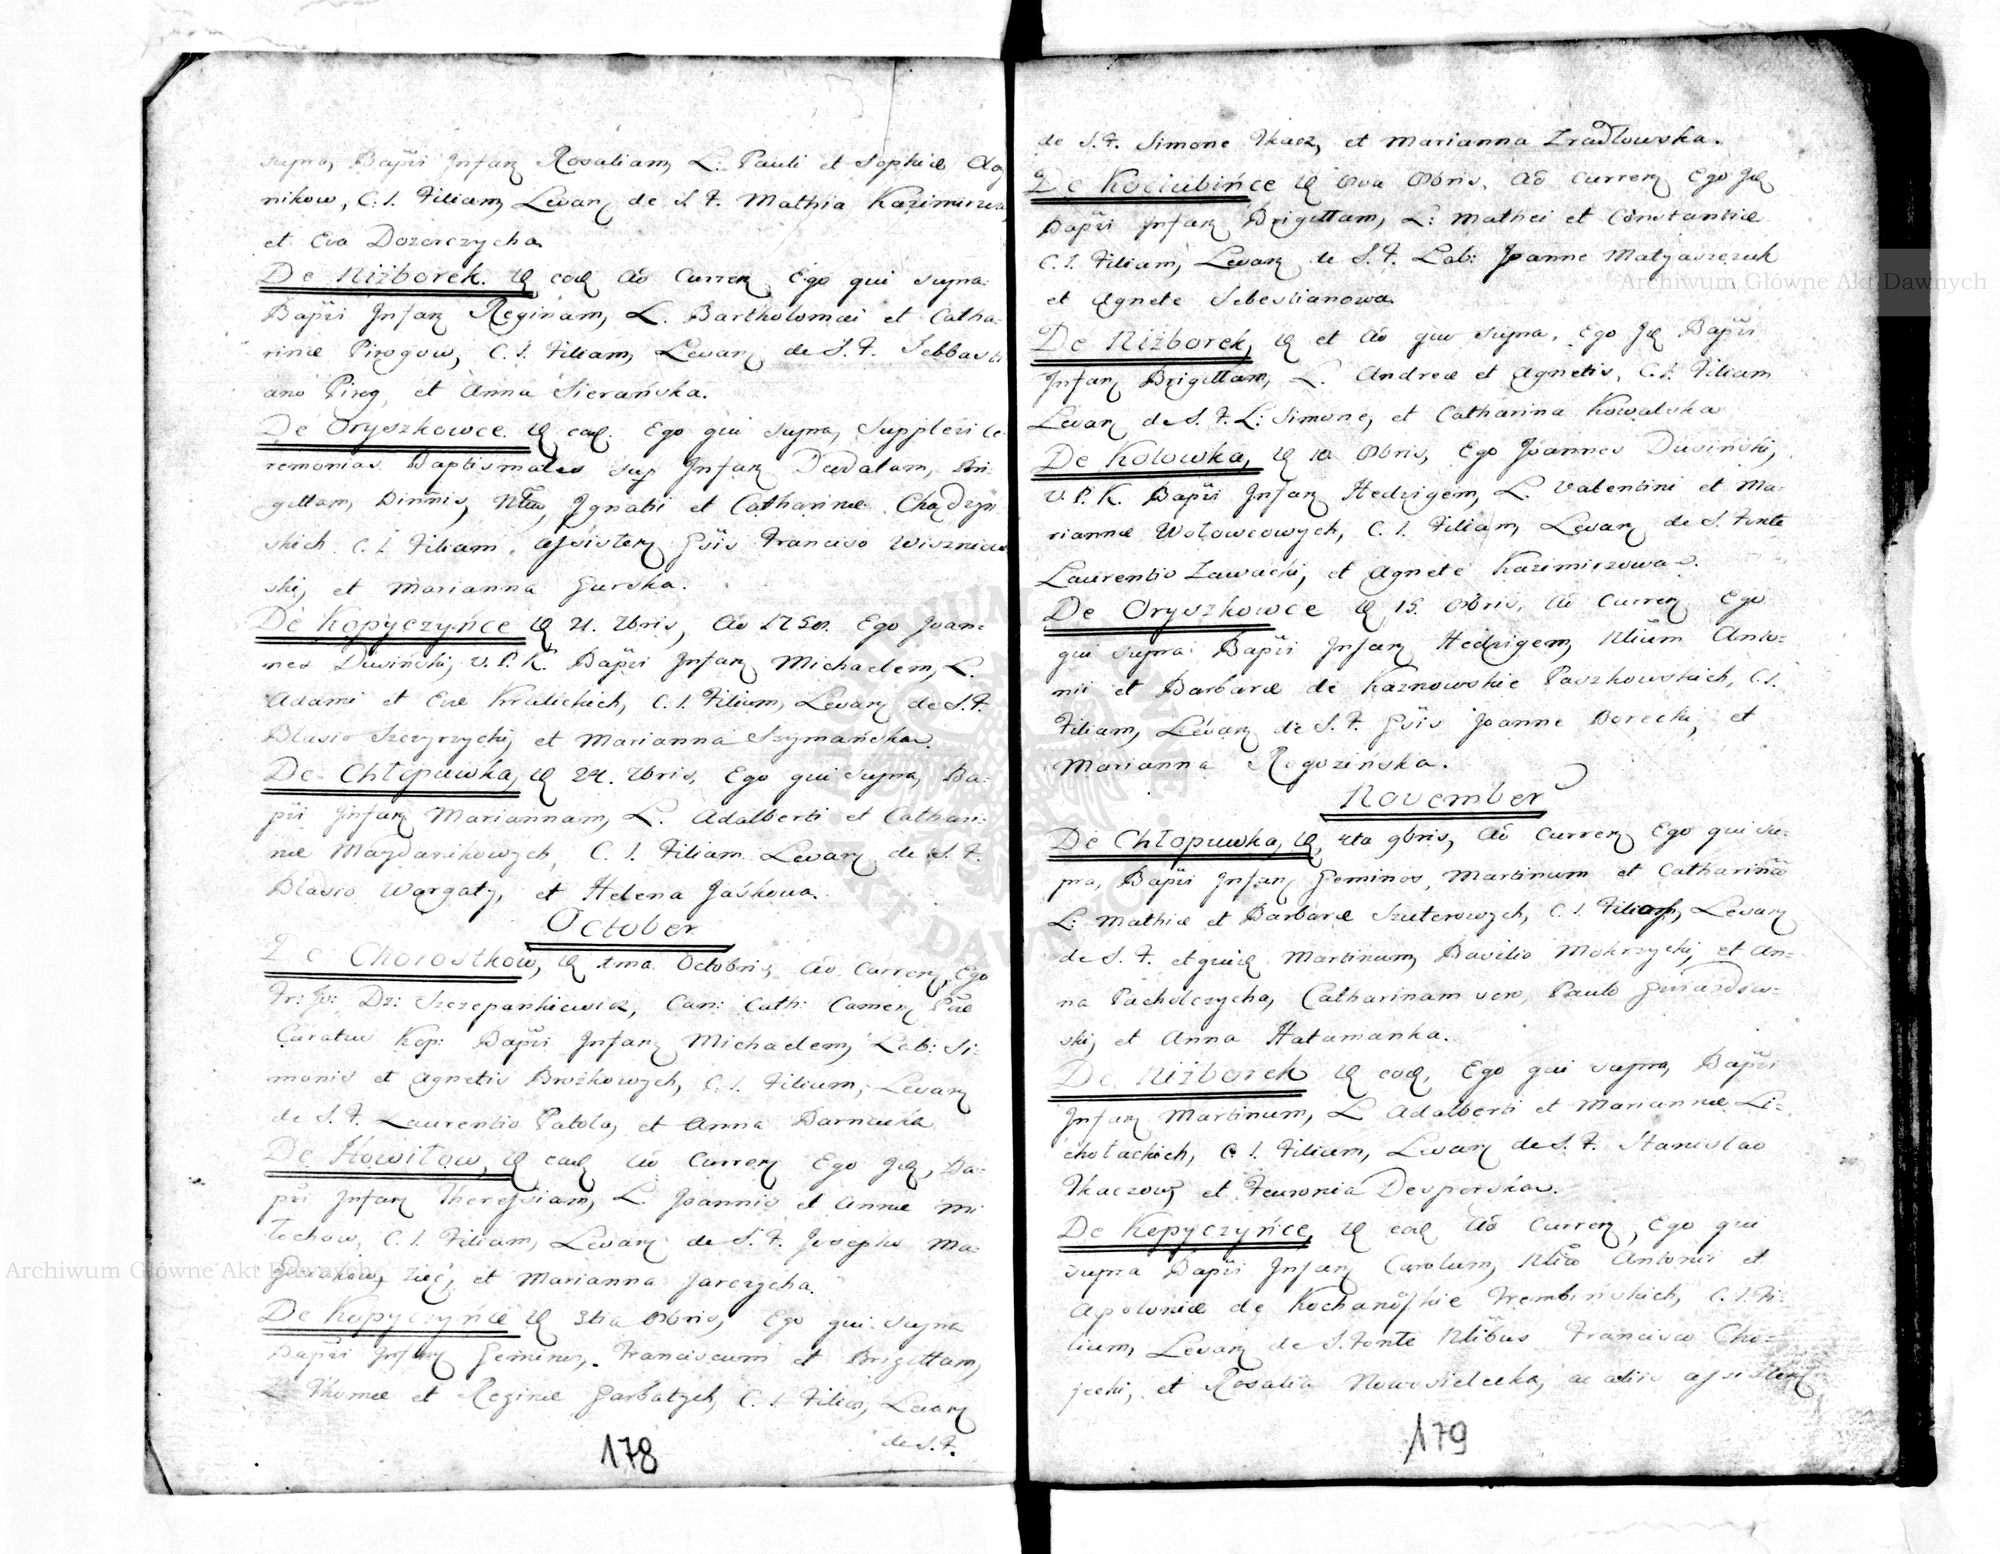 supra, Baptizi Infan Rosaliam, L: Pauli et Sophiæ Og
nikow, C. L. Filiam, Levan de S. F. Mathia Kazimirzen
et Eva Dozorczycha
De Niżborek. D ead Ao Curren Ego qui supra
Bapti Infan Reginam, L. Bartholomæi et Catha-
rinæ Pirogow, C. L. Filiam, Levan de S. F. Sebbasti
ano Pirog, et Anna Sierańska.
De Oryszkowce. D ead. Ego qui supra, Supplevi Ce-
remonias Baptismales sup Infan Bri-
gittam, Ignatii et Catharinæ Chądzyń
skich C. L. Filiam. assisten Gsis Francisco Wiszniow
ski, et Marianna Gurska.
De Kopyczyńce D 21. 7bris, Ao 1750. Ego Joan-
nes Dusiński, V. P. K. Bapti Infan Michaelem, L.
Adami et Evæ Krulickich, C. L. Filium, Levan de S. F.
Blasio Szczyrzycki, et Marianna Szymańska.
De Chłopuwka, D 24. 7bris, Ego qui supra, Ba-
pti Infan Mariannam, L. Adalberti et Cathari-
næ Maydanikowych, C. L. Filiam Levan de S. F.
Blasio Wargaty, et Helena Jaśkowa.
October
De Chorostkow, D 1ma Octobris, Ao Curren, Ego
Fr: Jo: Dz: Szczepankiewicz, Can: Cath: Camen Præ
Curatus Kop: Bapti Infan Michaelem, Lab: Si-
monis et Agnetis Brożkowych, C. L. Filium, Levan
de S. F. Laurentio Patola, et Anna Barnaska
De Howiłow, D ead Ao Curren Ego Id, Ba-
pti Infan Theressiam, L. Joannis et Annæ Mi
łechow, C. L. Filiam, Levan de S. F. Josepho Ma-
zięć, et Marianna Jarczycha.
De Kopyczyńce D 3tia 8bris, Ego qui supra
Bapti Infan Geminos, Franciscum et Brigittam,
L. Thomæ et Reginæ Garbatych, C. L. Filios, Levan
de S. F.
178
de S. F. Simone Tkacz, et Marianna Zradlowska.
De Kociubińce D 8va 8bris, Ao Curren Ego Id
Bapti Infan Brigittam, L: Mathei et Constantiæ
C. L. Filiam, Levan de S. F. Lab: Joanne Matyaszczuk
et Agnete Sebestianowa.
De Niżborek, D et Ao quo supra, Ego Id Bapti
Infan Brigittam, L. Andreæ et Agnetis, C. L. Filiam
Levan de S. F. L: Simone, et Catharina Kowalska
De Kotowka, D 10 8bris, Ego Joannes Dusiński,
V. P. K. Bapti Infan Hedvigem, L. Valentini et Ma-
riannæ Wołowcowych, C. L. Filiam, Levan de S. Fonte
Laurentio Zawacki, et Agnete Kazimirzowa.
De Oryszkowce D 15. 8bris, Ao Curren Ego
qui supra Bapti Infan Hedvigem, Nlium Anto-
nii et Barbaræ de Kaznowskie Paszkowskich, C. L.
Filiam, Levan de S. F. Gsis Joanne Borecki, et
Marianna Rogozińska.
November
De Chłopuwka, D, 4ta 9bris, Ao Curren Ego qui su-
pra, Bapti Infan Geminos, Martinum et Catharinam
L: Mathiæ et Barbaræ Szuterowych, C. L. Filios, Levan
de S. F. et quid Martinum, Basilio Mokrzycki, et An-
na Pacholczycha, Catharinam vero, Paulo Gwiazdow-
ski, et Anna Hatamanka.
De Niżborek D ead, Ego qui supra, Bapti
Infan Martinum, L. Adalberti et Mariannæ Li-
chołackich, C. L. Filium, Levan de S. F. Stanislao
Tkaczow, et Fewronia Desperska.
De Kopyczyńce, D ead Ao Curren, Ego qui
supra Bapti Infan Carolum, Nlium Antonii et
Apoloniæ de Kochanoskie Trembińskich, C. L. Fi-
lium, Levan de S. Fonte Nlibus Francisco Cho-
jecki, et Rosalia Nowosielecka, ac aliis assisten
179
Archiwum Główne Akt Dawnych
Archiwum Główne Akt Dawnych